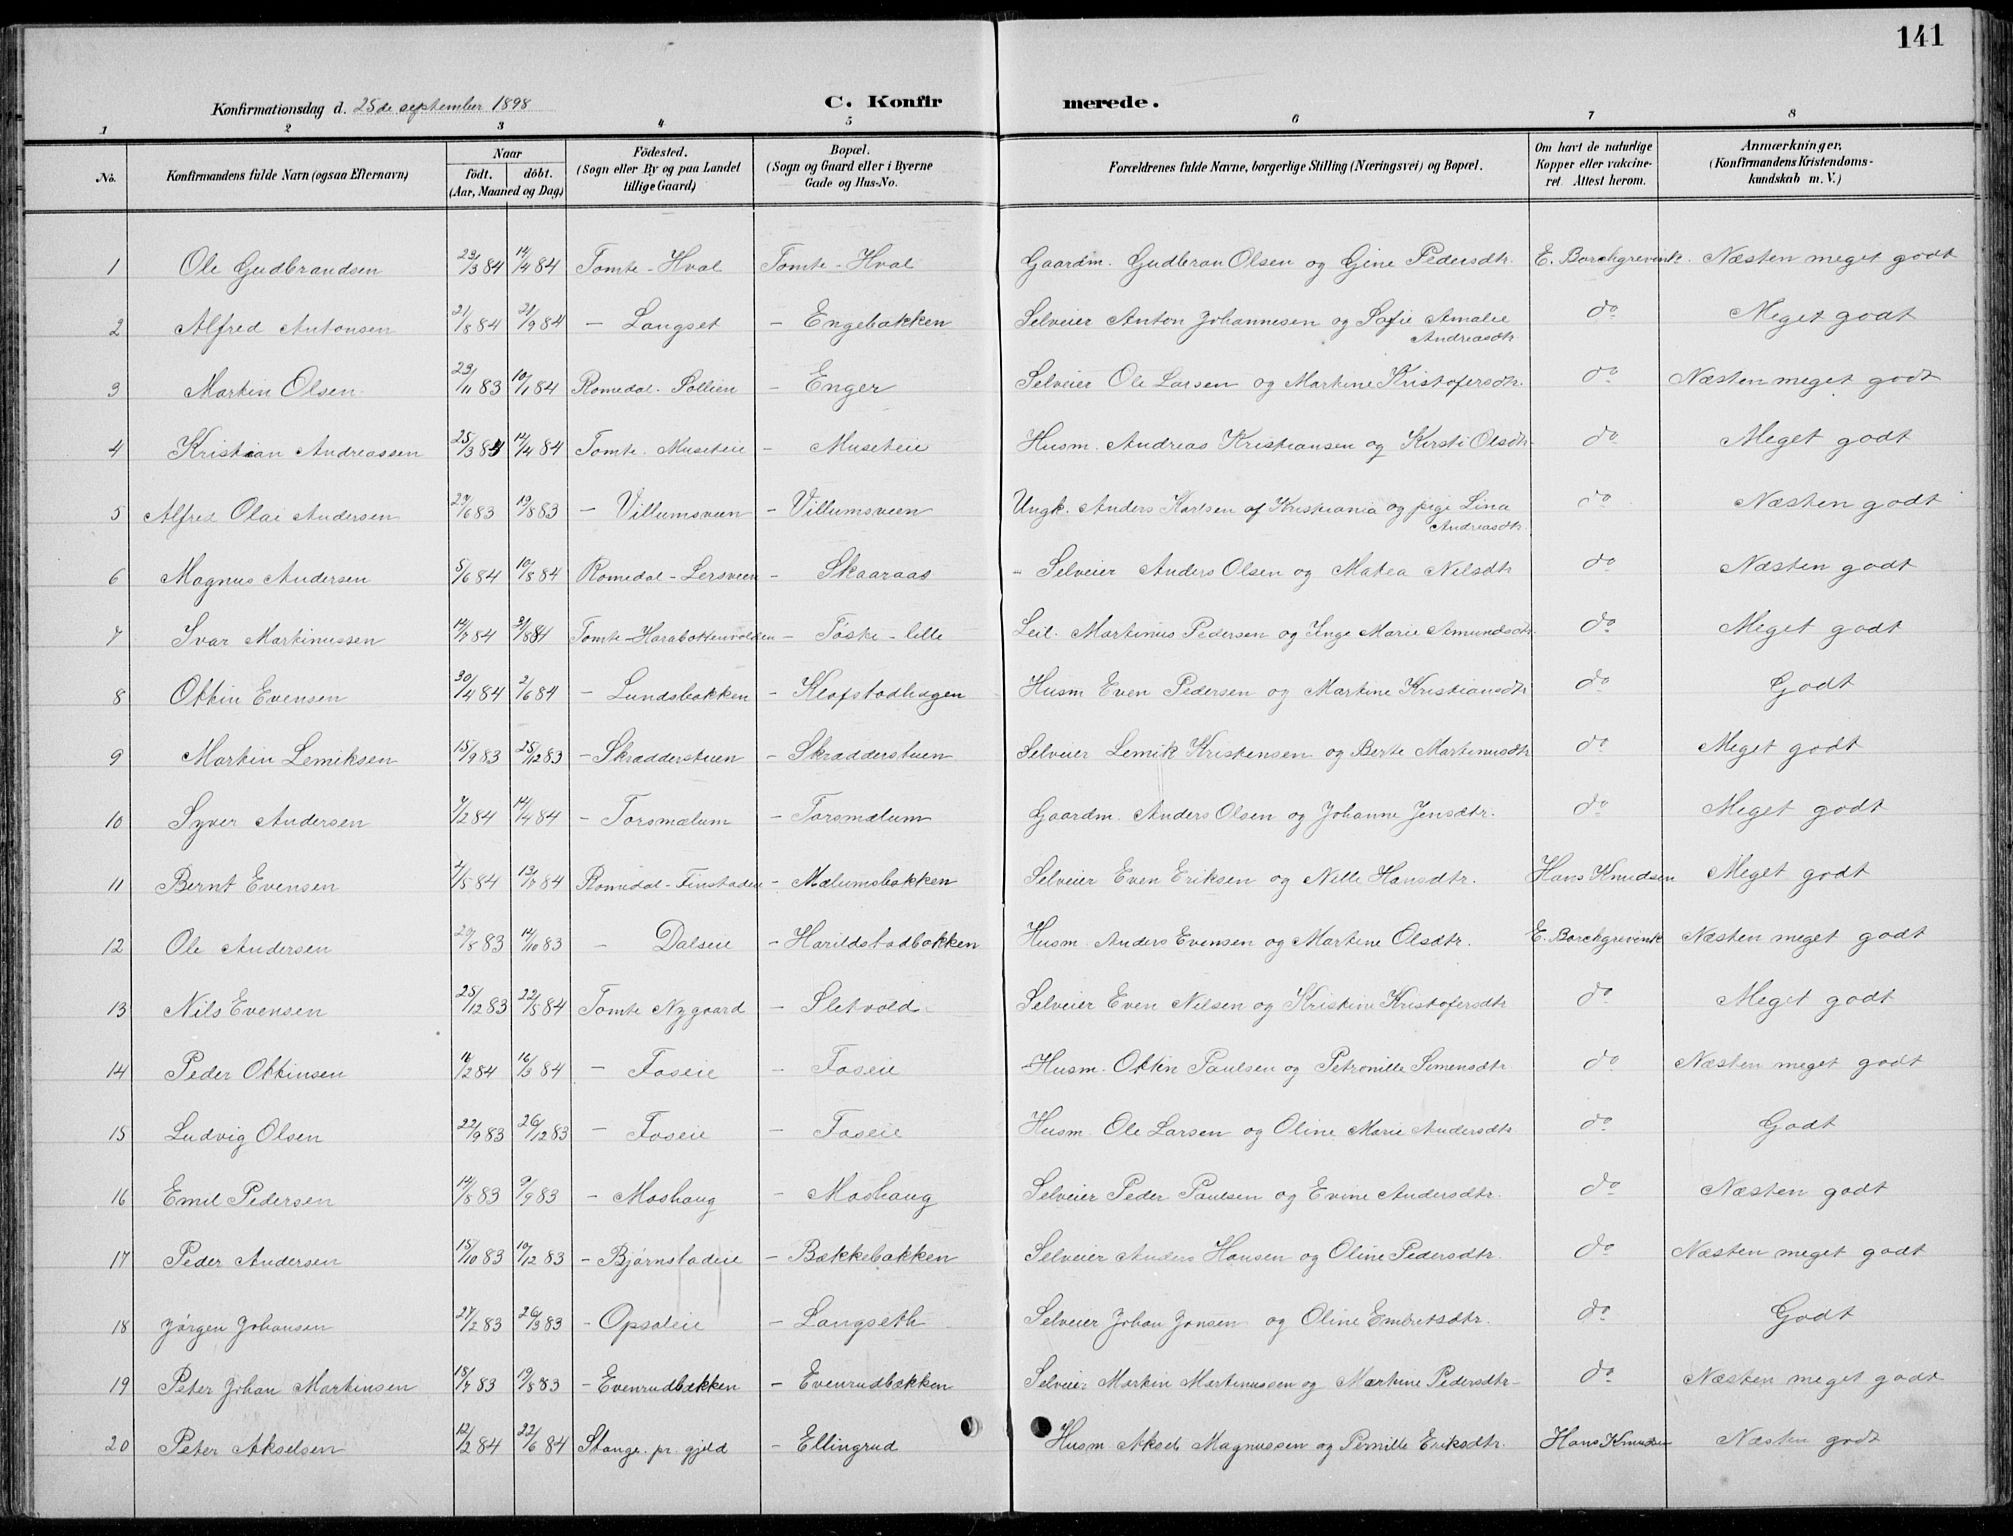 141
Konfirmationsdag d. 25de september 1898
C. Konfirmerede.
1 2 3 4 5 6 7 8
No. | Konfirmandens fulde Navn (ogsaa Efternavn) | Naar födt. döbt. (Aar, Maaned og Dag) | Födested. (Sogn eller By og paa Landet tillige Gaard) | Bopæl. (Sogn og Gaard eller i Byerne Gade og Hus-No. | Forældrenes fulde Navne, borgerlige Stilling (Næringsvei) og Bopæl. | Om havt de naturlige Kopper eller vakcineret. Attest herom. | Anmærkninger. (Konfirmandens Kristendomskundskab m. V.)
1 Ole Gudbrandsen 23/3 84 14/4 84 Tomte - Hval Tomte - Hval Gaardm. Gudbran Olsen og Gine Pedersdtr. E. Borchgrevink. Næsten meget godt
2 Alfred Antonsen 21/8 84 21/9 84 - Langset - Engebakken Selveier Anton Johannesen og Sofie Amalie Andreasdtr do Meget godt
3 Martin Olsen 23/11 83 10/1 84 Romedal - Sollien - Enger Selveier Ole Larsen og Martine Kristofersdtr. do Næsten meget godt
4 Kristian Andreassen 25/3 84 14/4 84 Tomte - Museteie - Museteie Husm. Andreas Kristiansen og Kirsti Olsdtr do Meget godt
5 Alfred Olai Andersen 27/6 83 19/8 83 - Villumsveen - Villumsveen Ungk. Anders Karlsen af Kristiania og pige Lina Andreasdtr. do Næsten godt
6 Magnus Andersen 5/6 84 10/8 84 Romedal - Lersveen - Skaaraas Selveier Anders Olsen og Matea Nilsdtr do Næsten godt
7 Ivar Martinussen 14/7 84 31/8 84 Tomte - Harabottenvolden - Töske - lille Leil. Martinus Pedersen og Inge Marie Amundsdtr. do Meget godt
8 Ottin Evensen 30/4 84 2/6 84 - Lundsbakken - Klofstadhagen Husm Even Pedersen og Martine Kristiansdtr do Godt
9 Martin Lemiksen 15/9 83 25/12 83 - Skrædderstuen - Skrædderstuen Selveier Lemik Kristensen og Berte Martinusdtr do Meget godt
10 Syver Andersen 7/2 84 14/4 84 - Torsmælum - Torsmælum Gaardm. Anders Olsen og Johanne Jensdtr. do Meget godt
11 Bernt Evensen 2/5 84 13/7 84 Romedal - Finstaden - Mælumsbakken Selveier Even Eriksen og Nille Hansdtr. Hans Knudsen Meget godt
12 Ole Andersen 27/8 83 14/10 83 - Dalseie - Harildstadbakken Husm Anders Evensen og Martine Olsdtr. E. Borchgrevink Næsten meget godt
13 Nils Evensen 25/12 83 22/5 84 Tomte Nygaard - Sletvold Selveier Even Nilsen og Kristine Kristofersdtr do Meget godt
14 Peder Ottinsen 16/2 84 16/3 84 - Foseie - Foseie Husm. Ottin Paulsen og Petronille Simensdtr do Næsten meget godt
15 Ludvig Olsen 22/9 83 26/12 83 - Foseie - Foseie Husm. Ole Larsen og Oline Marie Andersdtr do Godt
16 Emil Pedersen 14/8 83 9/9 83 - Moshaug - Moshaug Selveier Peder Paulsen og Evine Andersdtr. do Næsten godt
17 Peder Andersen 15/10 83 10/12 83 - Bjørnstadeie - Bækkebakken Selveier Anders Hansen og Oline Pedersdtr. do Næsten meget godt
18 Jörgen Johansen 27/2 83 26/3 83 - Opsaleie - Langseth Selveier Johan Jonsen og Oline Embretsdtr. do Godt
19 Peter Johan Martinsen 15/7 83 19/8 83 - Evenrudbakken - Evenrudbakken Selveier Martin Martinussen og Martine Pedersdtr- do Næsten meget godt
20 Peter Akselsen 12/2 84 22/6 84 Stange. pr. gjeld - Ellingrud Husm Aksel Magnussen og Pernille Eriksdtr. Hans Knudsen Næsten godt